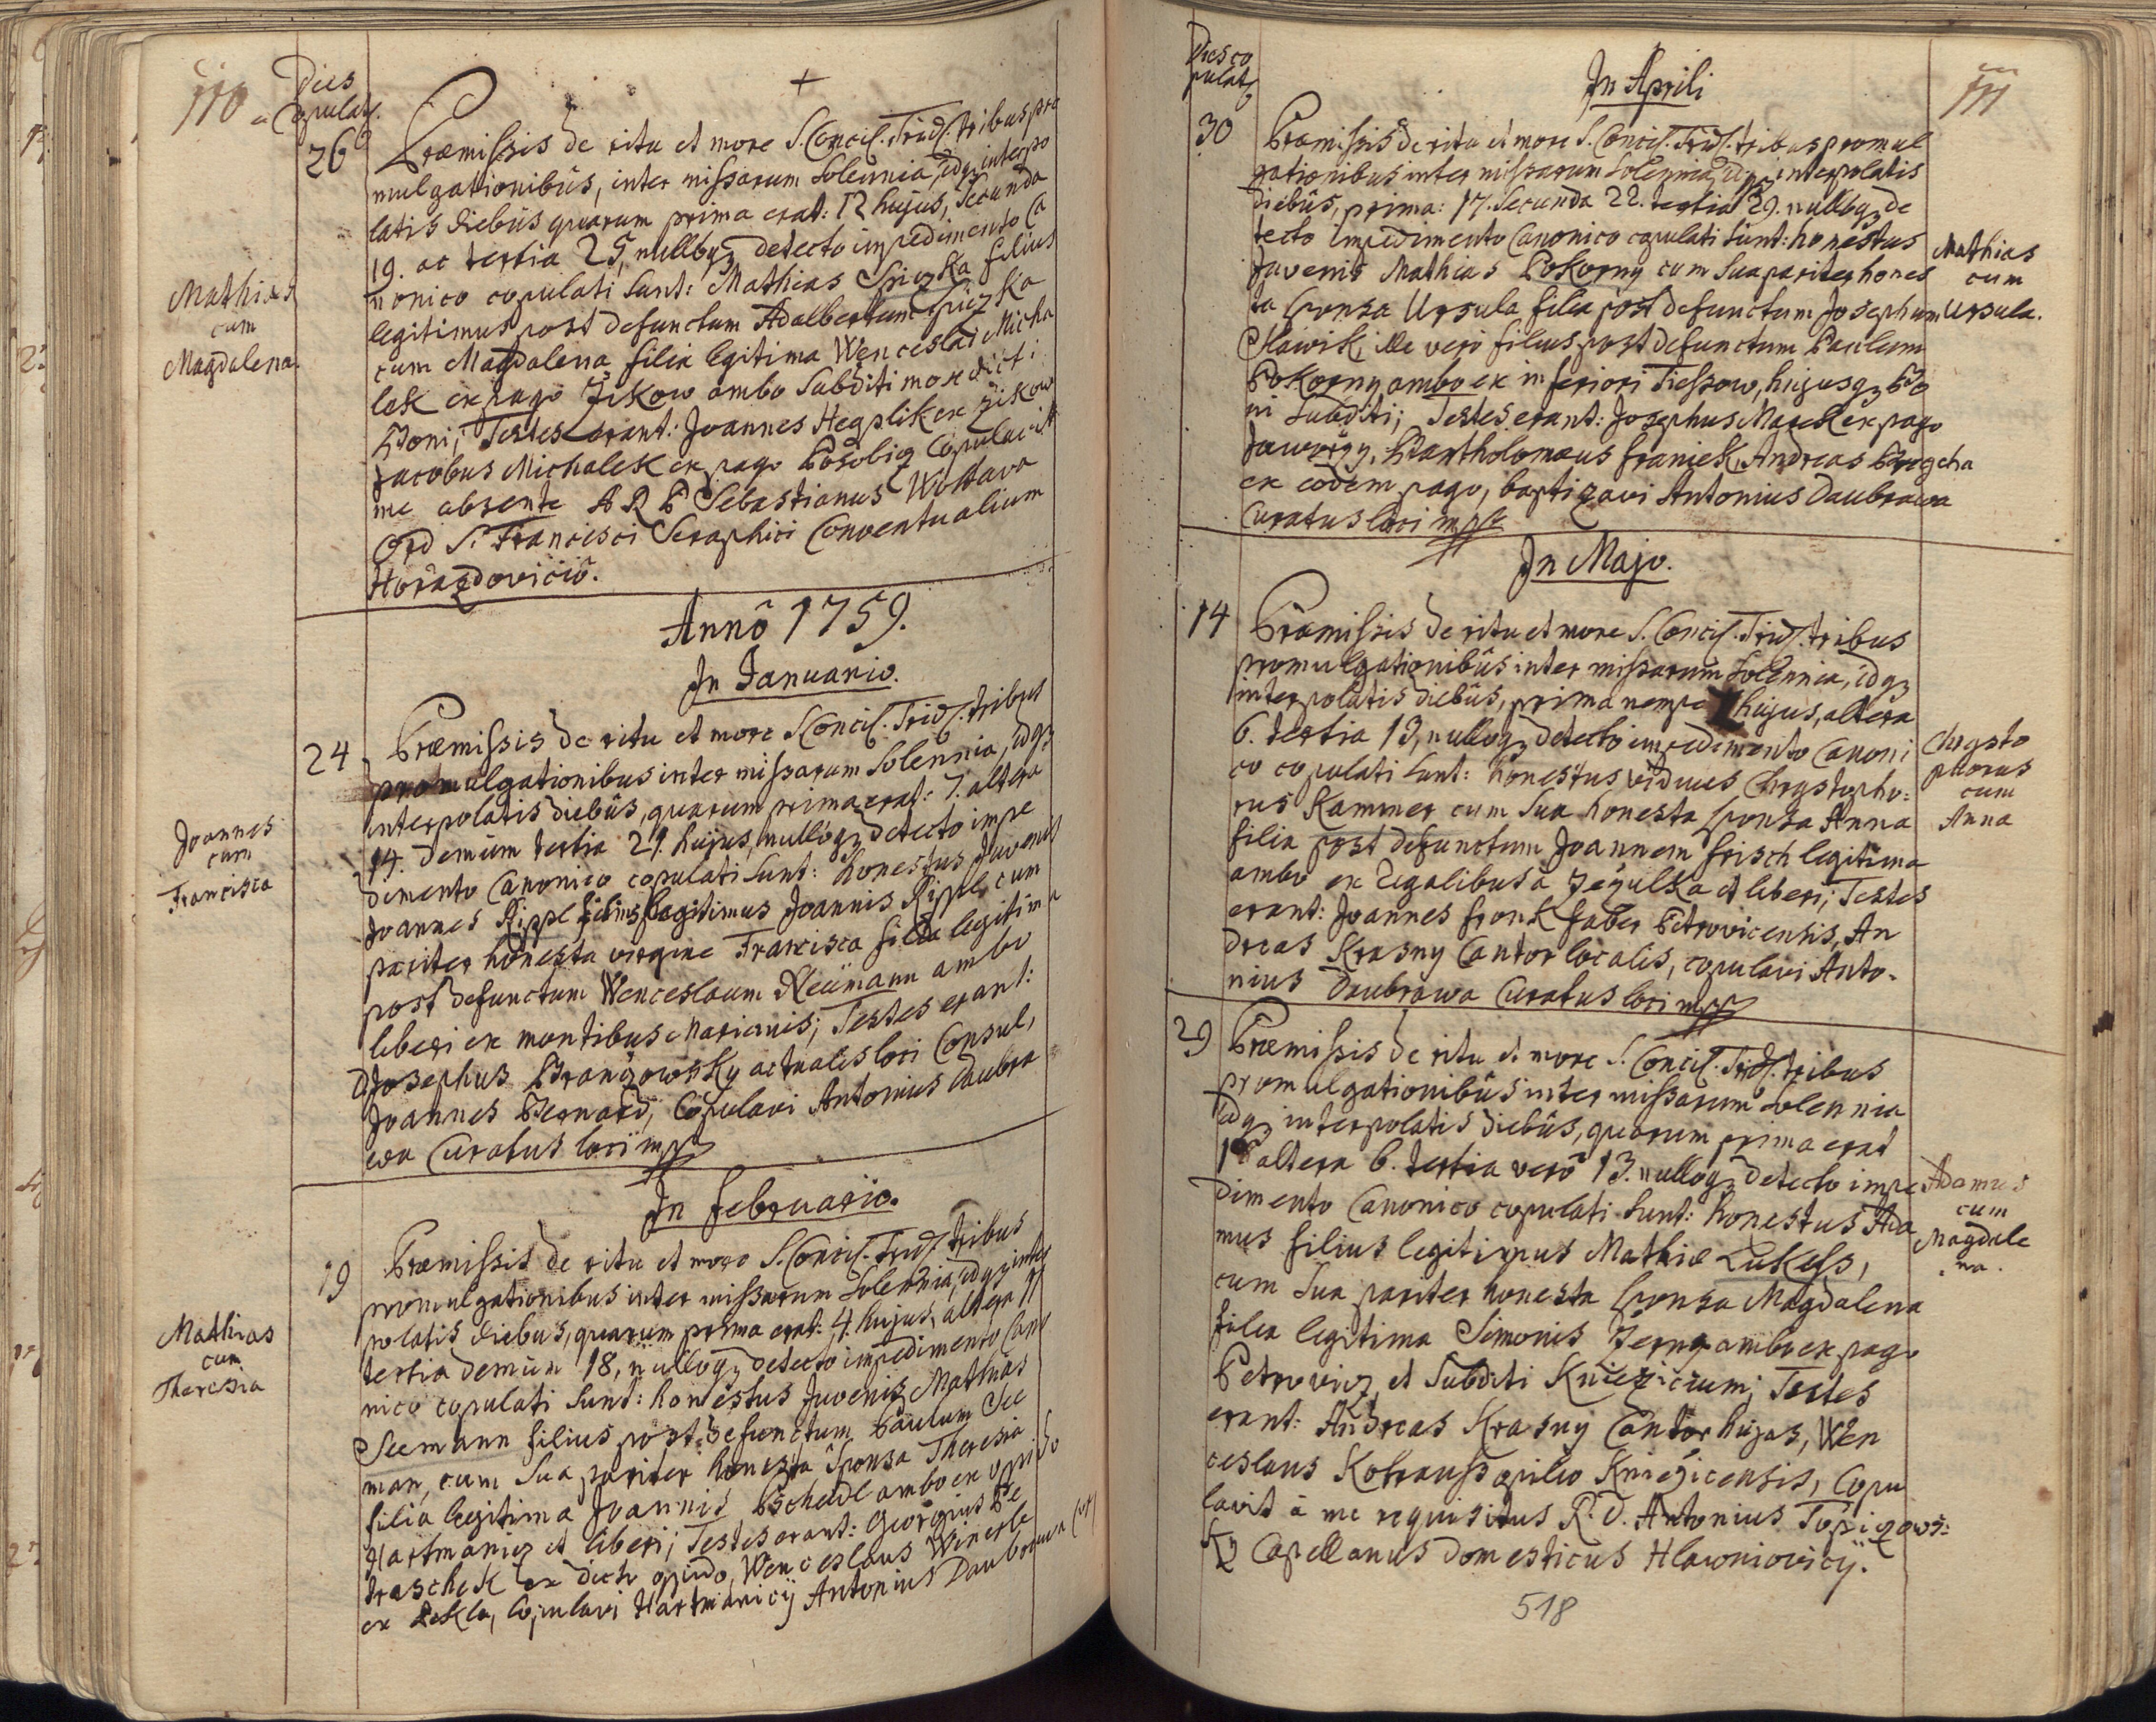 110
Dies
Copulat.
+
26
Præmissis de ritu et more S. Concil. Trid. tribus pro
mulgationibus, inter missarum Solennia, idqz interpo
latis diebus quarum prima erat: 12 hujus, Secunda
19. ac tertia 25, nulloqz detecto impedimento Ca
nonico copulati sunt: Mathias Spiczka filius
legitimus post defunctum Adalbertum Spiczka
cum Magdalena filia legitima Wenceslai Micha
lek ex pago Zikow ambo Subditi mox dicti
Boni; Testes erant: Joannes Hegplik ex Zikow
Jacobus Michalek ex pago Posobicz Copulavit
me absente A R P Sebastianus Woltava
Ord S. Francisci Seraphici Conventualium
Horazdovicio.
Mathias
cum
Magdalena.
Annô 1759.
In Januario.
24
Præmissis de ritu et more S Concil. Trid. tribus
promulgationibus inter missarum Solennia, idqz
interpolatis diebus, quarum prima erat: 7. altera
14. demum tertia 21. hujus, nulloqz detecto impe
dimento Canonico copulati sunt: honestus Juvenis
Joannes Rippl filius legitimus Joannis Rippl, cum
pariter honesta virgine Francisca filia legitima
post defunctum Wenceslaum Neümann ambo
liberi ex montibus Marianis; Testes erant:
Josephus Branzowsky actualis loci Consul,
Joannes Bernard; Copulavi Antonius Daubra
wa Curatus loci mpp
Joannes
cum
Francisca
In Februario.
19
Præmissis de ritu et more S. Concil. Trid. tribus
promulgationibus inter missarum Solennia, idqz inter
polatis diebus, quarum prima erat: 4. hujus, altera 11
tertia demum 18, nulloqz detecto impedimento Cano
nico copulati sunt: honestus Juvenis Mathias
Seemann filius post defunctum Paulum See
man, cum Sua pariter honesta Sponsa Theresia
filia legitima Joannis Pscheidl ambo ex oppido
Hartmanicz et liberi; Testes erant: Georgius Pe
traschek ex dicto oppido, Wenceslaus Winerle
ex Zekla, Copulavi Hartmanicij Antonius Daubrawa
Mathias
cum
Theresia
Dies co
pulat
In Aprili
111
30
Præmissis de ritu et more S. Concil. Trid. tribus promul
gationibus inter missarum Solennia, idqz interpolatis
diebus, prima: 17. Secunda 22. tertia 29. nulloqz de
tecto impedimento Canonico copulati sunt: honestus
Juvenis Mathias Pokorny cum Sua pariter hones
ta Sponsa Ursula filia post defunctum Josephum
Slawik, ille vero filius post defunctum Paulum
Pokorny ambo ex inferiori Tiessow, hujusqz Bo
ni Subditi; Testes erant: Josephus Marek ex pago
Jaworzy, Bartholomæus Franiek, Andreas Prgcha
ex eodem pago, baptizavi Antonius Daubrawa
Curatus loci mpp
Mathias
cum
Ursula.
In Majo.
14
Præmissis de ritu et more S. Concil. Trid. tribus
promulgationibus inter missarum Solennia, idqz
interpolatis diebus, prima nempe 1 hujus, altera
6. tertia 13, nulloqz detecto impedimento Canoni
co copulati sunt: honestus viduus Chrystopho:
rus Kammer cum Sua honesta Sponsa Anna
filia post defunctum Joannem Frisch legitima
ambo ex Regalibus à Zegulka et liberi; Testes
erant: Joannes Fronk faber Petrovicensis, An
dreas Krasny Cantor localis, copulavi Anto-
nius Daubrawa Curatus loci mpp
Chrysto
phorus
cum
Anna
29
Præmissis de ritu et more S. Concil. Trid. tribus
promulgationibus inter missarum Solennia
idqz interpolatis diebus, quarum prima erat
1 altera 6. tertia verô 13. nulloqz detecto impe
dimento Canonico copulati sunt: honestus Ada
mus filius legitimus Mathiæ Lukess,
cum Sua pariter honesta Sponsa Magdalena
filia legitima Simonis Zerny ambo ex pago
Petrovicz, et Subditi Kniezicium; Testes
erant: Andreas Krasny Cantor hujas, Wen
ceslaus Kotrauss opilio Kniezicensis, Copu
lavit à me requisitus R. D. Antonius Topizows:
ky Capellanus domesticus Hlawniovicij.
Adamus
cum
Magdale
na.
518